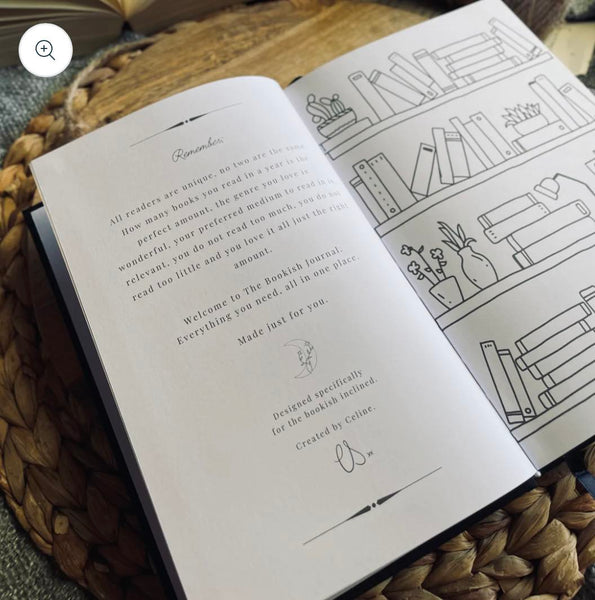 Remember,
All readers are unique, no two are the same.
How many books you read in a year is the
perfect amount, the genre you love is
wonderful, your preferred medium to read in is
relevant, you do not read too much, you do not
read too little and you love it all just the right
amount.
Welcome to The Bookish Journal:
Everything you need, all in one place.
Made just for you.
Designed specifically
for the bookish inclined.
Created by Celine.
CS xx